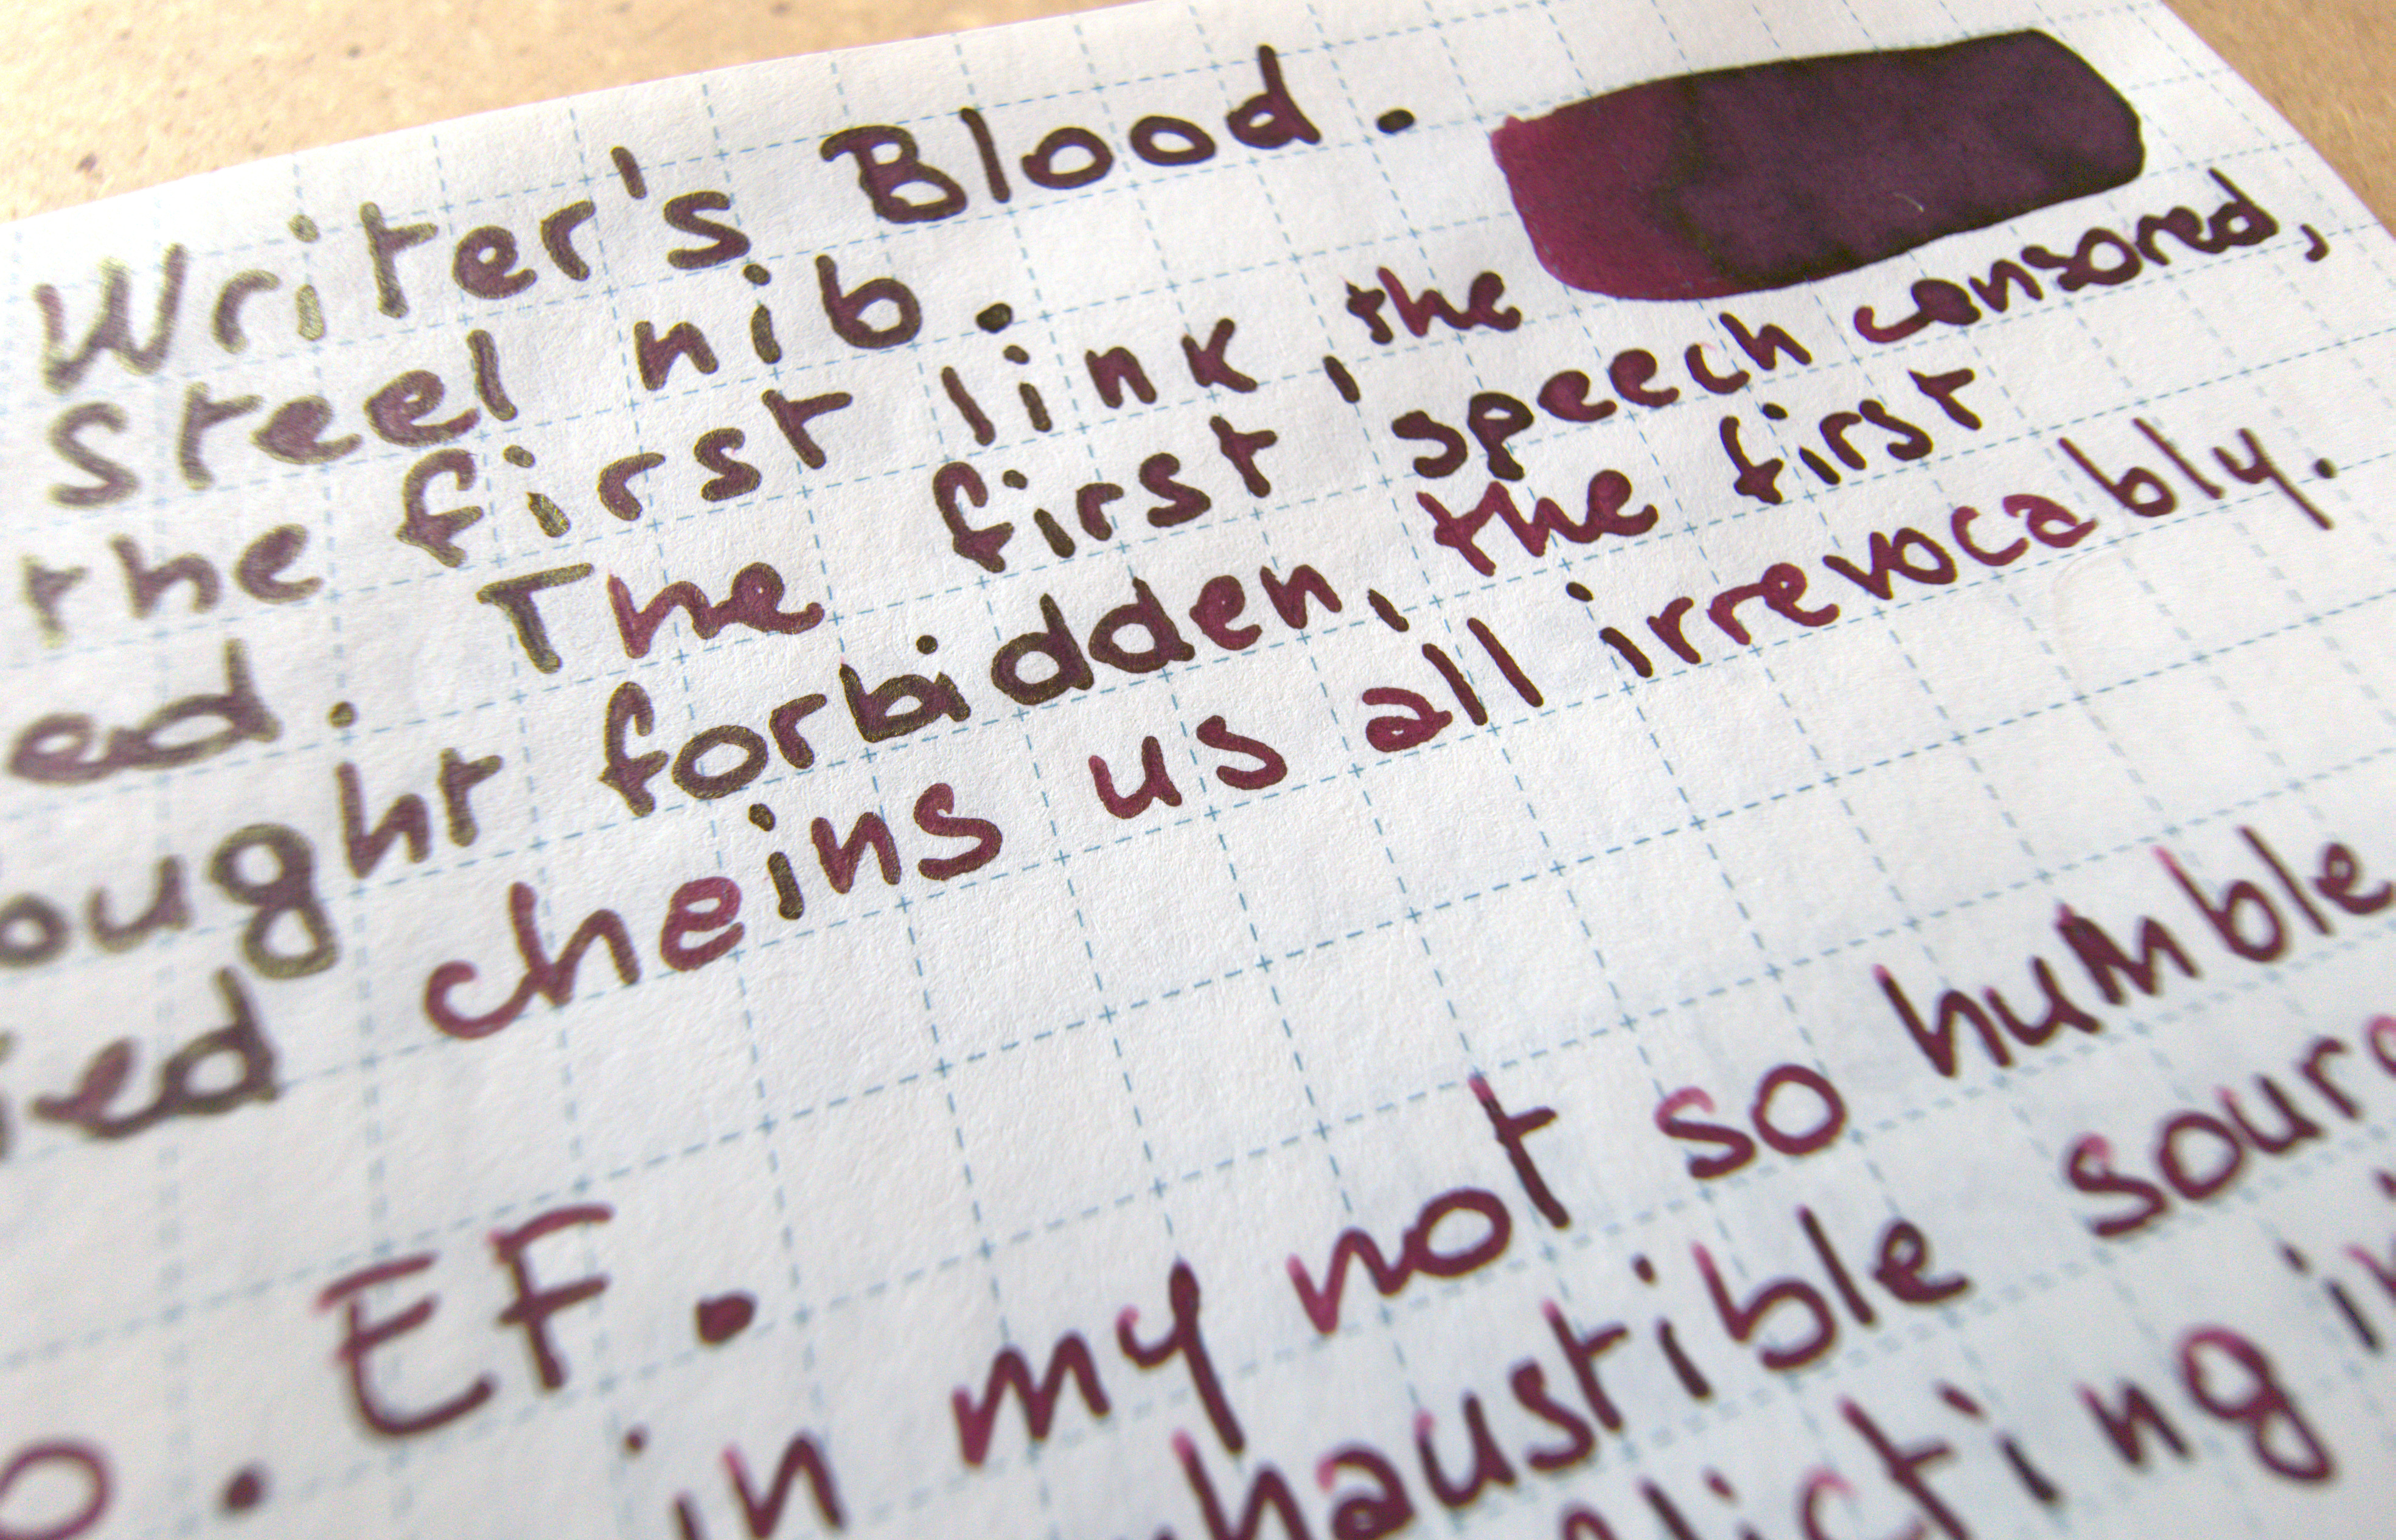 Writer's Blood.
Steel nib.
the first link, the
ed. The first speech censored,
ought forbidden, the first
ied cheins us all irrevocably.
o. EF.
in my not so humble
haustible sourc
licting in